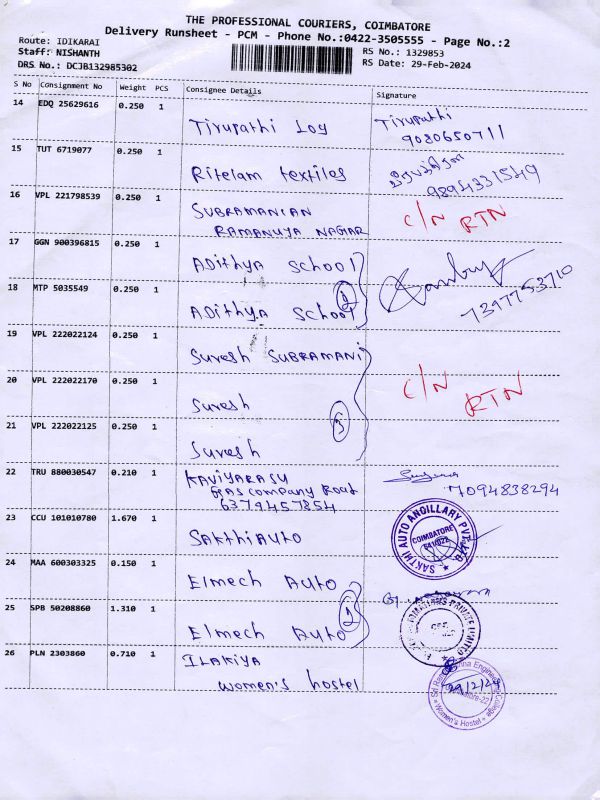 THE PROFESSIONAL COURIERS, COIMBATORE
Delivery Runsheet - PCM - Phone No.:0422-3505555 - Page No.:2
Route: IDIKARAI
Staff: NISHANTH
DRS No.: DCJB132985302
RS No.: 1329853
RS Date: 29-Feb-2024
S No Consignment No Weight PCS Consignee Details Signature
14 EDQ 25629616 0.250 1
Tirupathi Loy
Tirupathi
9080650711
15 TUT 6719077 0.250 1
Ritelam textiles
9894331549
16 VPL 221798539 0.250 1
SUBRAMANIAN
RAMANUYA NAGAR
C/N RTN
17 GGN 900396815 0.250 1
ADithYA School
18 MTP 5035549 0.250 1
ADithYA School
7397753710
19 VPL 222022124 0.250 1
Suresh SUBRAMANI
20 VPL 222022170 0.250 1
Suresh
3
C/N RTN
21 VPL 222022125 0.250 1
Suresh
22 TRU 880030547 0.210 1
KAVIYARASU
GAS company Road
6379457854
7094838294
23 CCU 101010780 1.670 1
SAKthiAUTO
SAKTHI AUTO ANCILLARY PVT LTD
COIMBATORE
641022
24 MAA 600303325 0.150 1
Elmech AUTO
25 SPB 50208860 1.310 1
Elmech AUTO
2
PRIVATE LIMITED
26 PLN 2303860 0.710 1
ILAKIYA
women's hostel
Engineering College
Women's Hostel
29/2/24